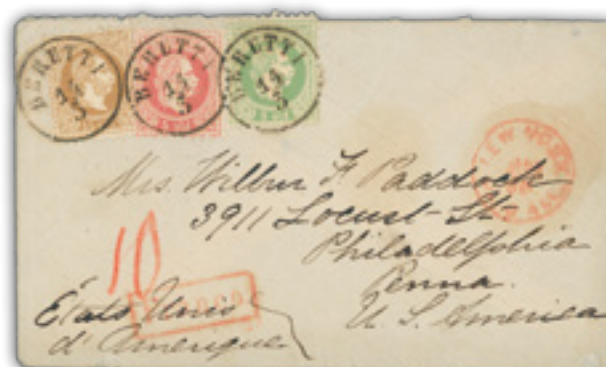 BERETTI
14
5
BERETTI
14
5
BERETTI
14
5
NEW YORK
Mrs. Wilbur F. Paddock
3911 Locust St
Philadelphia
Penna.
U. S. America
10
États Unis
d'Amerique